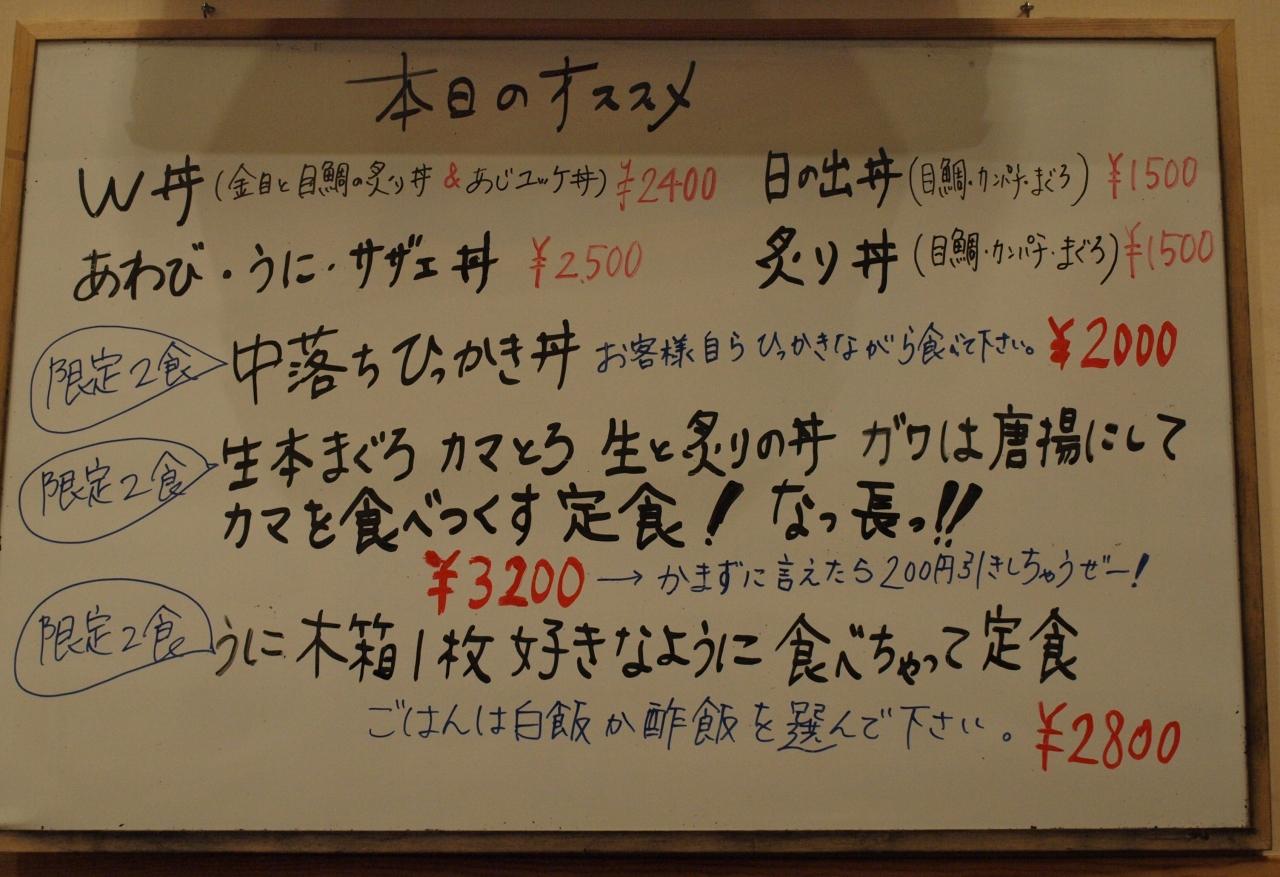 本日のオススメ
W丼(金目と目鯛の炙り丼&あじユッケ丼)¥2400
日の出丼(目鯛・カンパチ・まぐろ)¥1500
あわび・うに・サザエ丼 ¥2,500
炙り丼(目鯛・カンパチ・まぐろ)¥1500
限定2食 中落ちひっかき丼 お客様自らひっかきながら食べて下さい。¥2000
限定2食 生本まぐろ カマとろ 生と炙りの丼 ガワは唐揚にして
カマを食べつくす定食! なっ長っ!!
¥3200→かまずに言えたら200円引きしちゃうぜー!
限定2食 うに木箱1枚好きなように食べちゃって定食
ごはんは白飯か酢飯を選んで下さい。¥2800